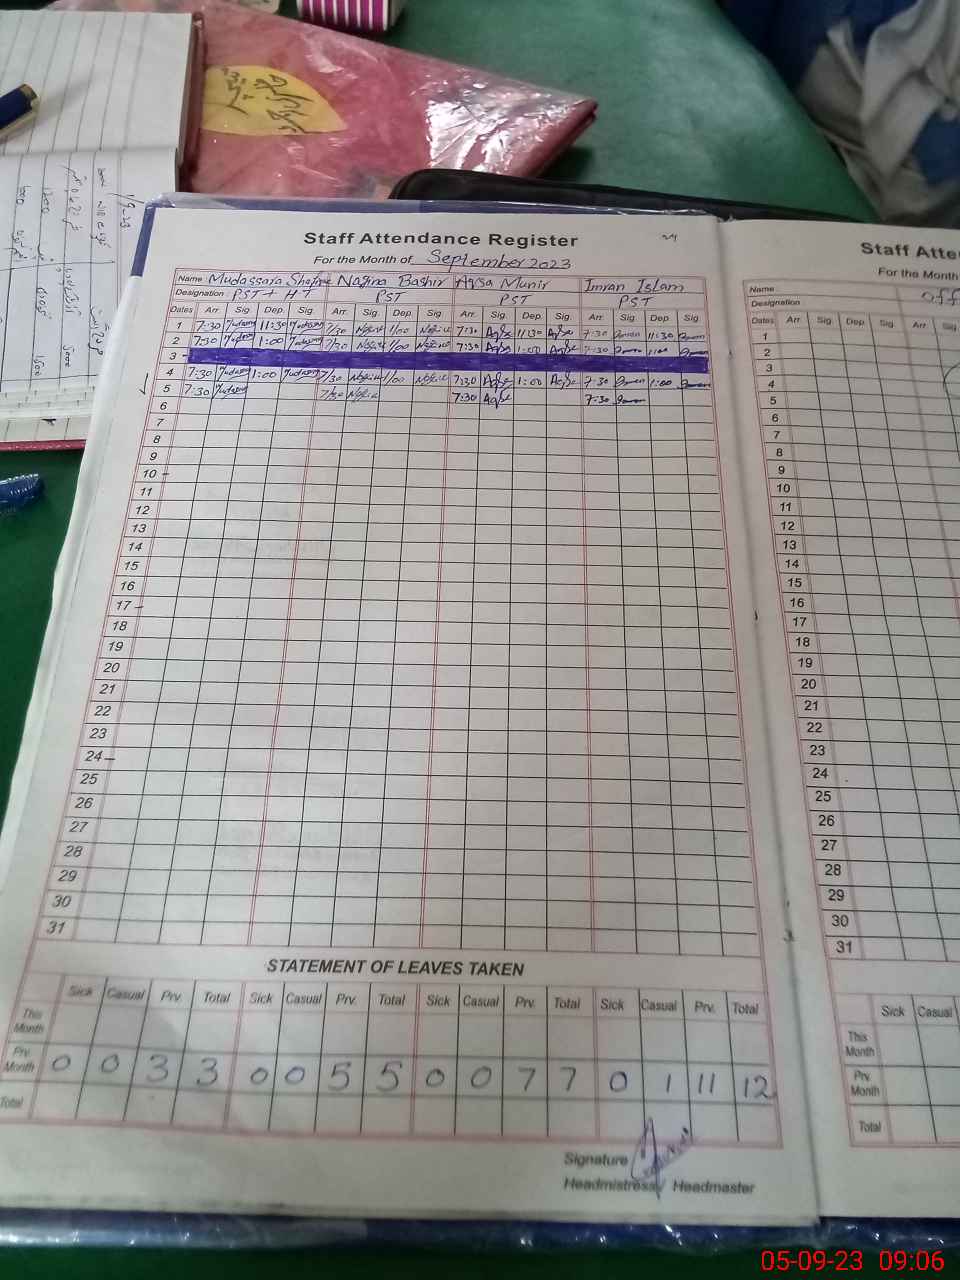 Staff Attendance Register
For the Month of September 2023
Name Mudassara Nagina Bashir Aqsa Munir Imran Islam
Designation PST + HT PST PST PST
Dates Arr. Sig. Dep. Sig. Arr. Sig. Dep. Sig. Arr. Sig. Dep. Sig. Arr. Sig. Dep Sig.
1 7:30 Mudassara 11:30 Mudassara 7/30 Nagina 1/00 Nagina 7:30 Aqsa 11:30 Aqsa 7:30 Imran 11:30 Imran
2 7:30 Mudassara 1:00 Mudassara 7/30 Nagina 1/00 Nagina 7:30 Aqsa 1:00 Aqsa 7:30 Imran 1:00 Imran
3
4 7:30 Mudassara 1:00 Mudassara 7/30 Nagina 1/00 Nagina 7:30 Aqsa 1:00 Aqsa 7:30 Imran 1:00 Imran
5 7:30 Mudassara 7/30 Nagina 7:30 Aqsa 7:30 Imran
6
7
8
9
10
11
12
13
14
15
16
17
18
19
20
21
22
23
24
25
26
27
28
29
30
31
STATEMENT OF LEAVES TAKEN
Sick Casual Prv. Total Sick Casual Prv. Total Sick Casual Prv. Total Sick Casual Prv. Total
This Month
Prv. Month 0 0 3 3 0 0 5 5 0 0 7 7 0 1 11 12
Total
Signature
Headmistress/ Headmaster
Staff Atte
For the Month
Name
Designation
Dates Arr. Sig. Dep. Sig. Arr. Sig.
1
2
3
4
5
6
7
8
9
10
11
12
13
14
15
16
17
18
19
20
21
22
23
24
25
26
27
28
29
30
31
Sick Casual
This Month
Prv. Month
Total
05-09-23 09:06